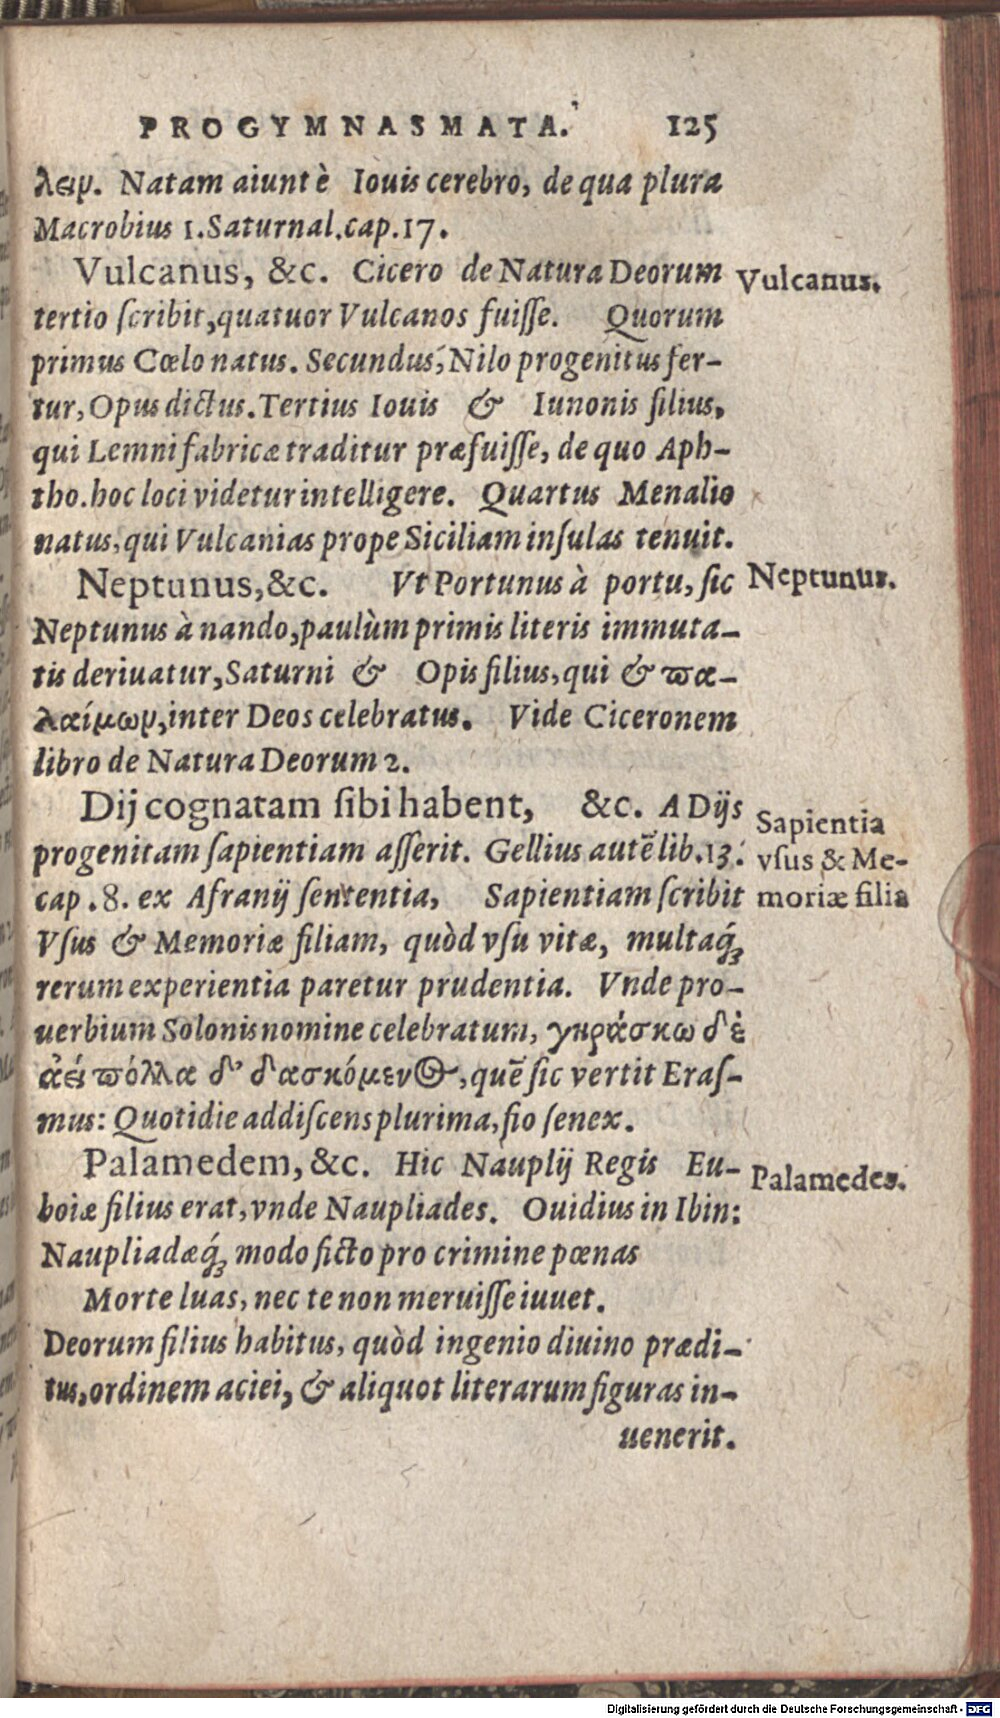 PROGYMNASMATA. 125
λειν. Natam aiunt è Iouis cerebro, de qua plura
Macrobius 1. Saturnal. cap. 17.
Vulcanus, &c. Cicero de Natura Deorum
Vulcanus.
tertio ſcribit, quatuor Vulcanos fuiſſe. Quorum
primus Cœlo natus. Secundus, Nilo progenitus fer-
tur, Opus dictus. Tertius Iouis & Iunonis filius,
qui Lemni fabricæ traditur præfuiſſe, de quo Aph-
tho. hoc loci videtur intelligere. Quartus Menalio
natus, qui Vulcanias prope Siciliam inſulas tenuit.
Neptunus, &c. Vt Portunus à portu, ſic
Neptunus.
Neptunus à nando, paulùm primis literis immuta-
tis deriuatur, Saturni & Opis filius, qui & πα-
λαίμων, inter Deos celebratus. Vide Ciceronem
libro de Natura Deorum 2.
Dij cognatam ſibi habent, &c. A Dijs
Sapientia
vſus & Me-
moriæ filia
progenitam ſapientiam aſſerit. Gellius autẽ lib. 13.
cap. 8. ex Afranij ſententia, Sapientiam ſcribit
Vſus & Memoriæ filiam, quòd vſu vitæ, multaq́;
rerum experientia paretur prudentia. Vnde pro-
uerbium Solonis nomine celebratum, γηράσκω δ' ἐ
ἀεί πόλλα δ' δασκόμενος, quẽ ſic vertit Eraſ-
mus: Quotidie addiſcens plurima, fio ſenex.
Palamedem, &c. Hic Nauplij Regis Eu-
Palamedes.
boiæ filius erat, vnde Naupliades. Ouidius in Ibin:
Naupliadæq́; modo ficto pro crimine pœnas
Morte luas, nec te non meruiſſe iuuet.
Deorum filius habitus, quòd ingenio diuino prædi-
tus, ordinem aciei, & aliquot literarum figuras in-
uenerit.
Digitalisierung gefördert durch die Deutsche Forschungsgemeinschaft - DFG